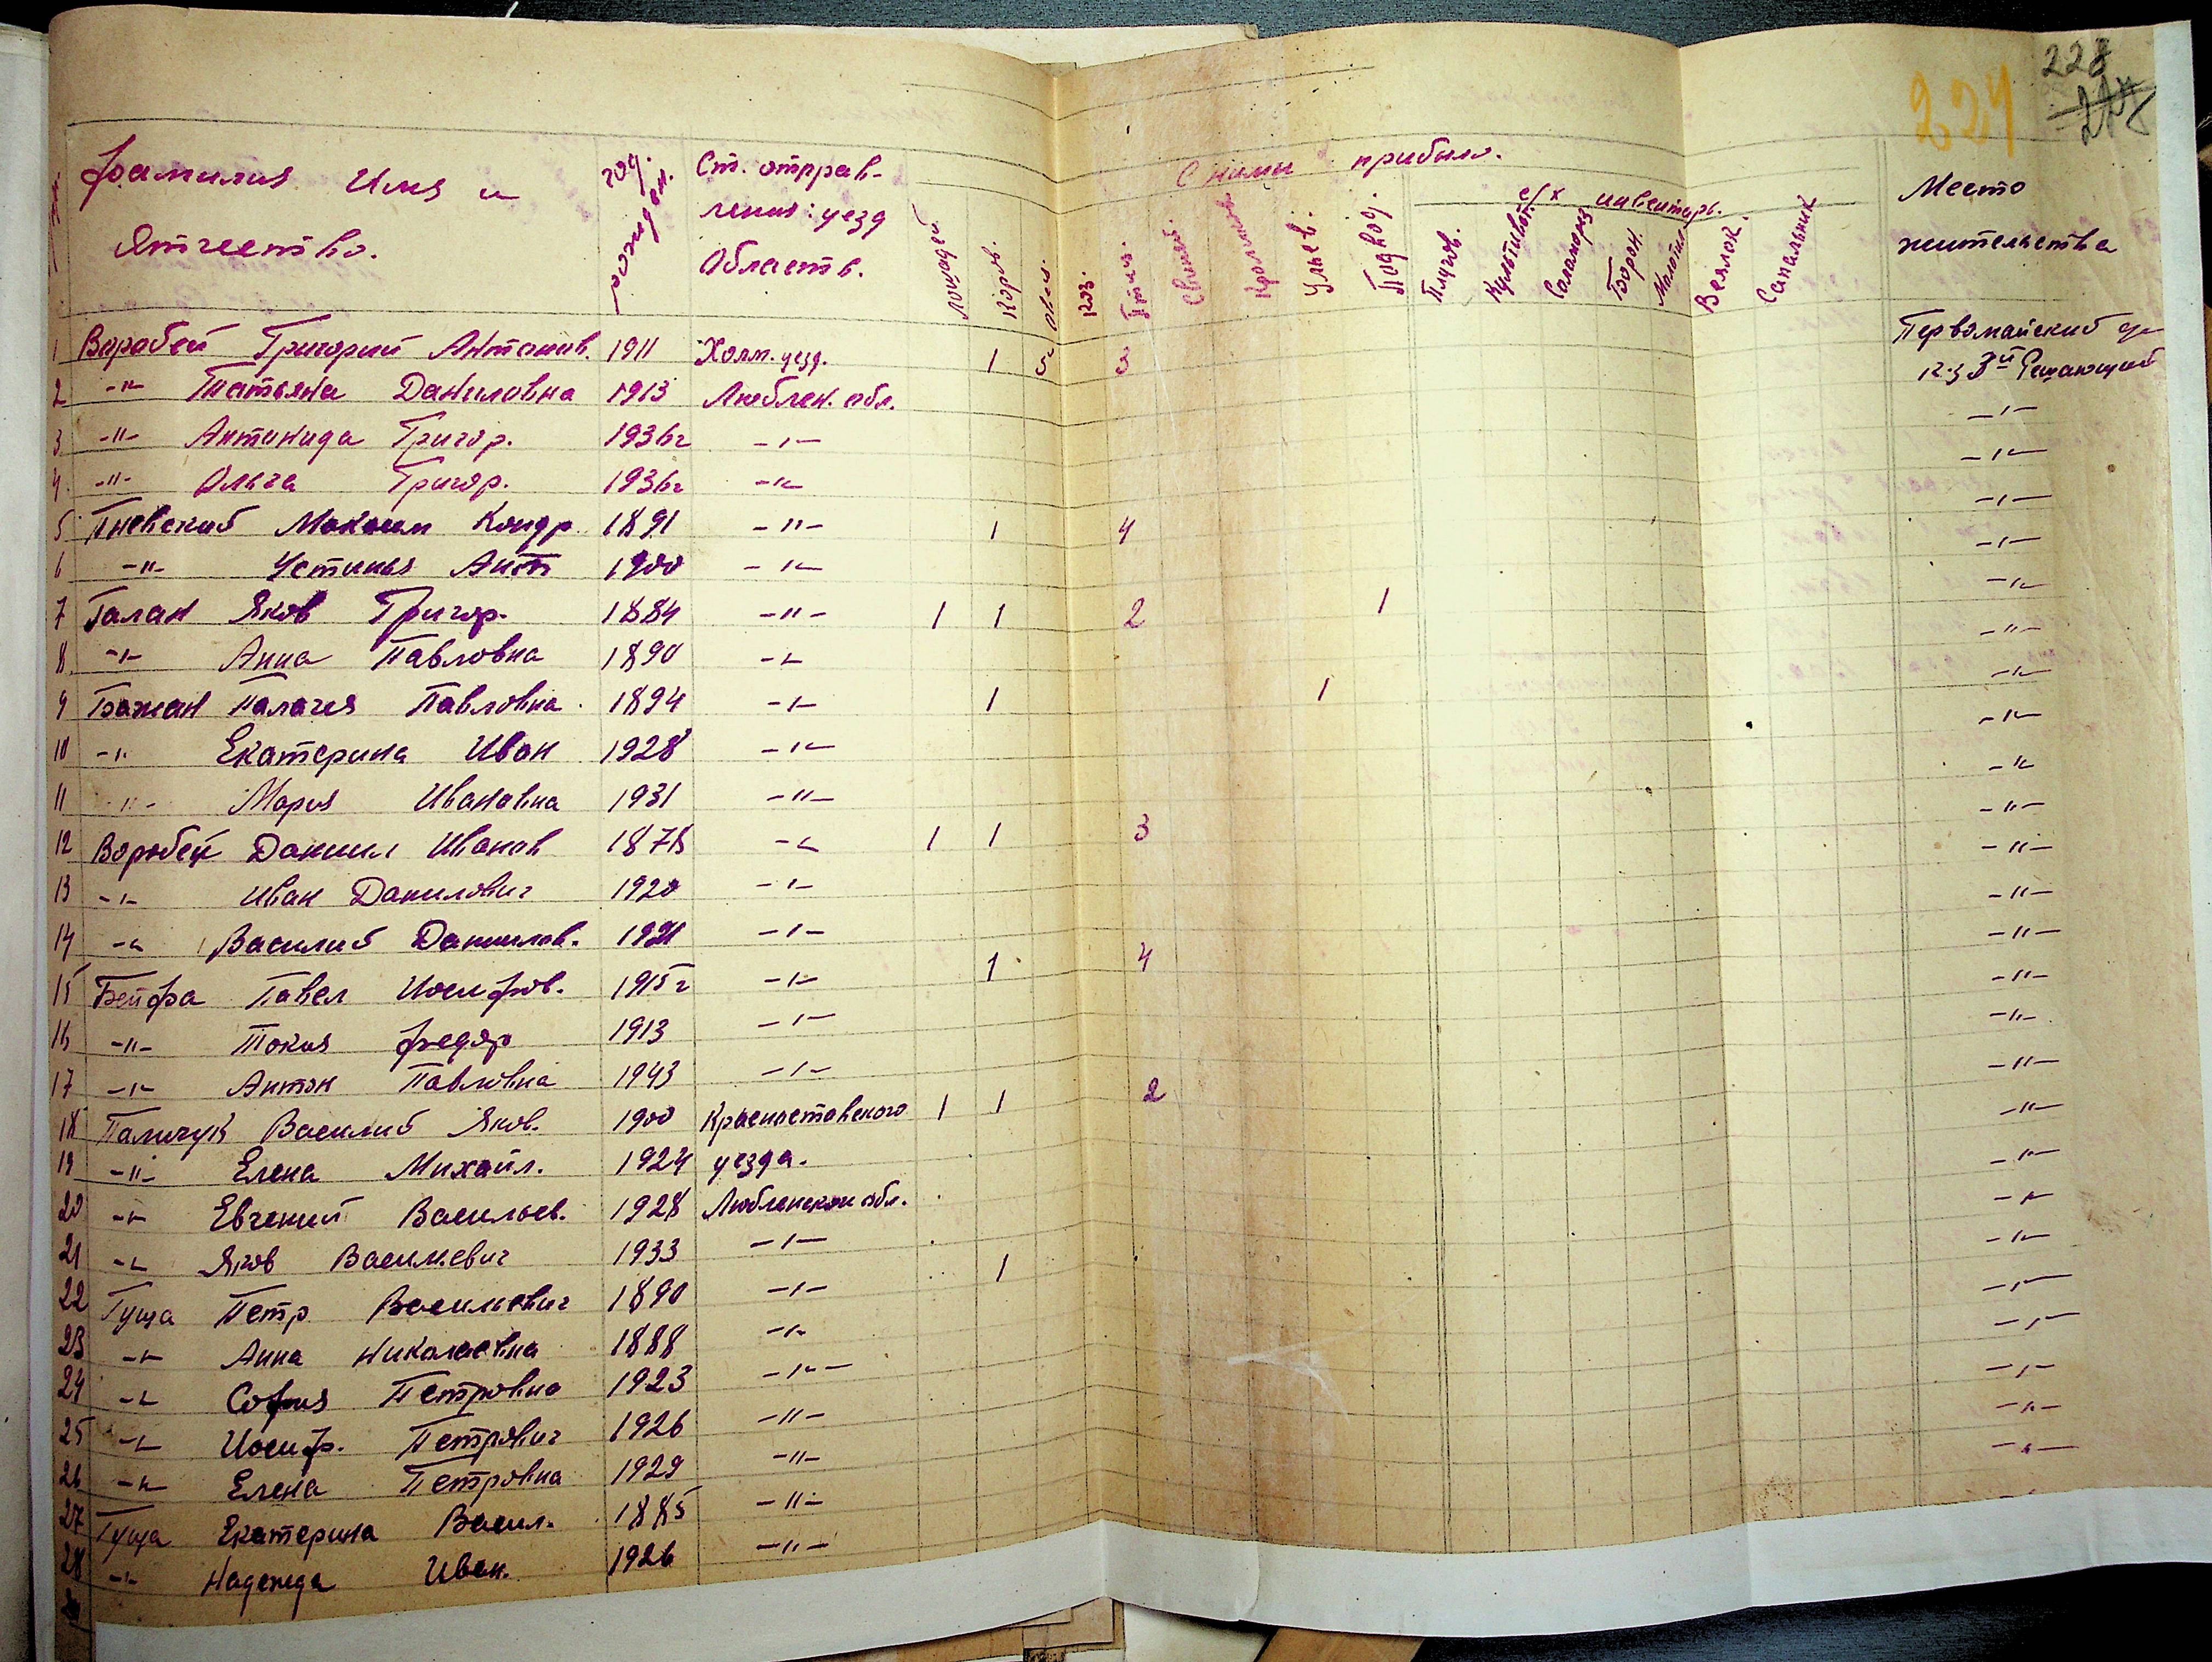 224
228
Фамилия Имя и Отчество.
год рожден.
Ст. отправления: уезд Область.
С ними прибыло.
Лошадей
Коров.
Овец.
Коз.
Птиц.
Свиней.
Кроликов
Ульев.
Подвод.
с/х инвентарь.
Плугов.
Культиват.
Соломорез
Борон.
Молотил.
Веялок.
Сапальник
Место жительства
1 Воробей Григорий Антонов. 1911 Холм. уезд. 1 3 Первомайский
к-з 3й Решающий
2 -"- Татьяна Даниловна 1913 Люблен. обл. -"-
3 -"- Антонида Григор. 1936г -"- -"-
4 -"- Ольга Григор. 1936г -"- -"-
5 Пневский Максим Кондр. 1891 -"- 1 4 -"-
6 -"- Устинья Ант 1900 -"- -"-
7 Галан Яков Григор. 1884 -"- 1 1 2 1 -"-
8 -"- Анна Павловна 1890 -"- -"-
9 Бажан Палагея Павловна 1894 -"- 1 1 -"-
10 -"- Екатерина Иван 1928 -"- -"-
11 -"- Мария Ивановна 1931 -"- -"-
12 Воробей Даниил Иванов 1878 -"- 1 1 3 -"-
13 -"- Иван Данилович 1920 -"- -"-
14 -"- Василий Данилов. -"- -"-
15 Бейфа Павел Иосифов. 1915г -"- 1 4 -"-
16 -"- Федор 1913 -"- -"-
17 -"- Антон Павловна 1943 -"- -"-
18 Паличук Василий Яков. 1900 Красноставского 1 1 2 -"-
19 -"- Елена Михайл. 1924 уезда. -"-
20 -"- Евгений Васильев. 1928 Люблинской обл. -"-
21 -"- Яков Василиевич 1933 -"- -"-
22 Гуща Петр Васильевич 1890 -"- 1 -"-
23 -"- Анна Николаевна 1888 -"- -"-
24 -"- София Петровна 1923 -"- -"-
25 -"- Иосиф. Петрович 1926 -"- -"-
26 -"- Елена Петровна 1929 -"- -"-
27 Гуща Екатерина Васил. 1885 -"- -"-
28 -"- Надежда Иван. 1926 -"-